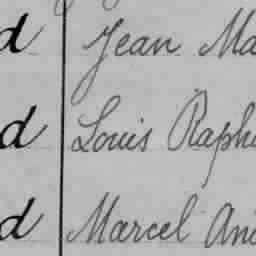 d Jean Ma
d Louis Raph
d Marcel And